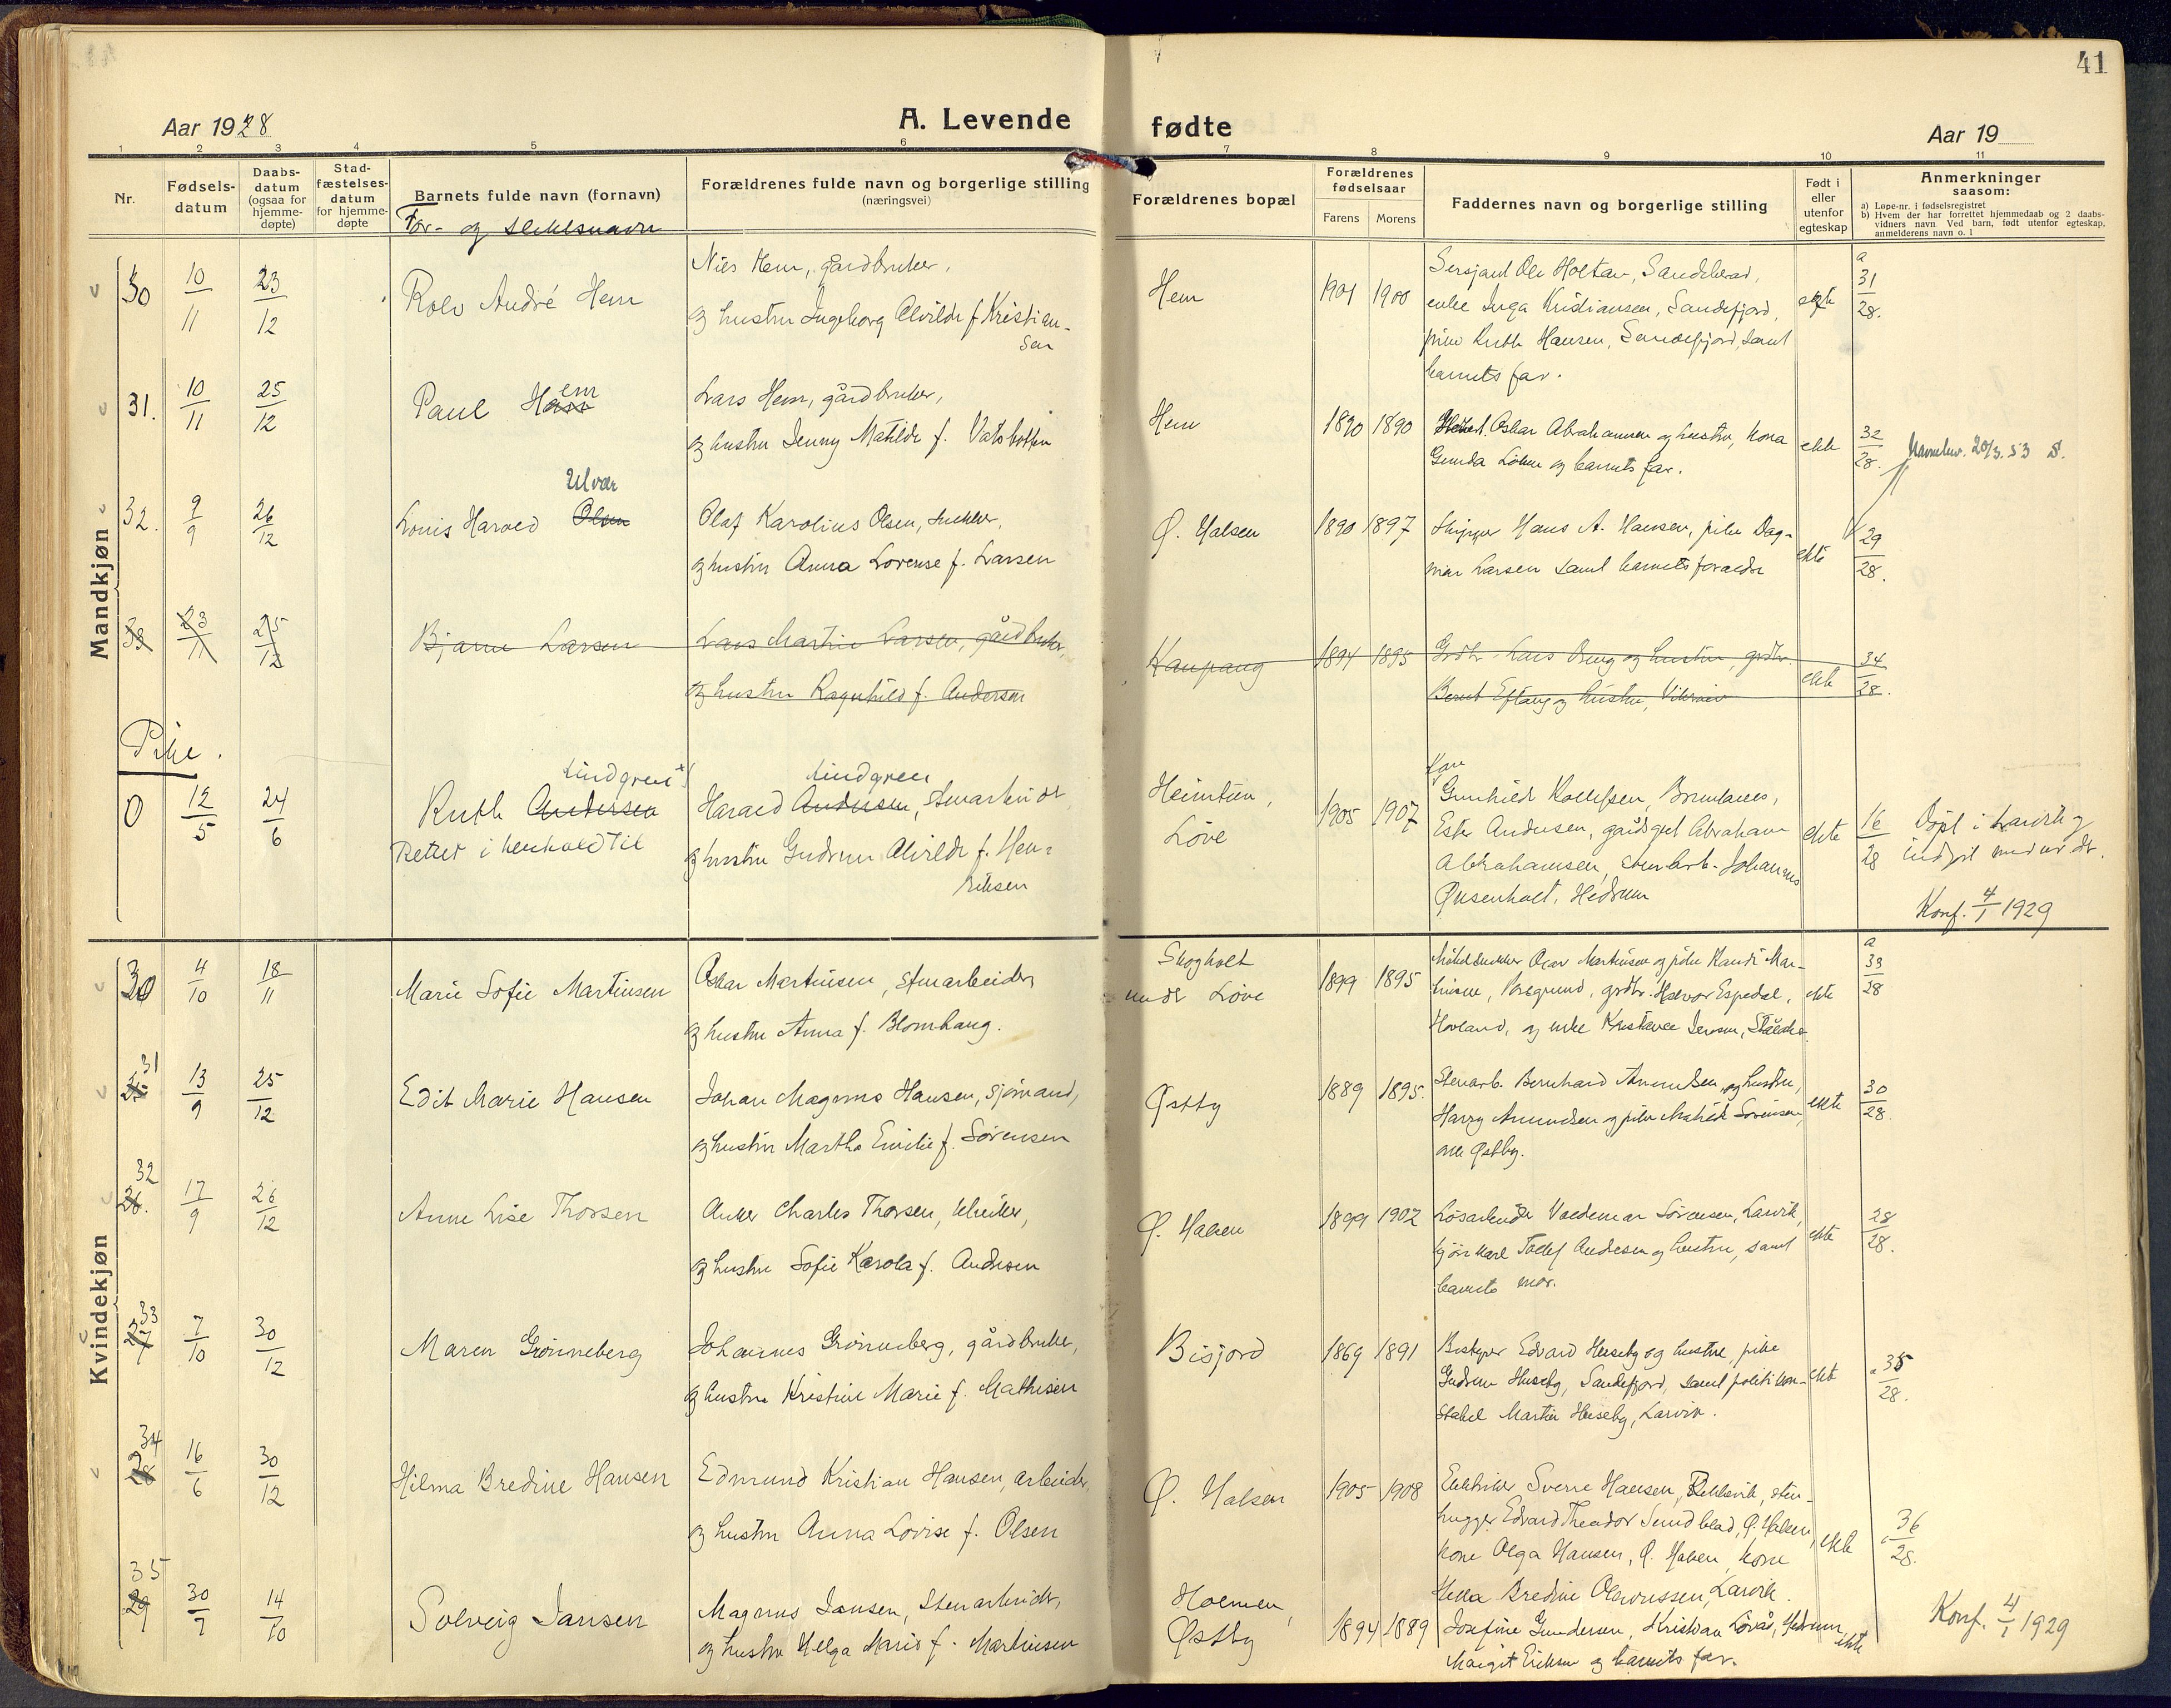 41
Aar 1928
A. Levende fødte
Aar 19
1 2 3 4 5 6 7 8 9 10 11
Nr.
Fødsels-
datum
Daabs-
datum
(ogsaa for
hjemme-
døpte)
Stad-
fæstelses-
datum
for hjemme-
døpte
Barnets fulde navn (fornavn)
For- og slektsnavn
Forældrenes fulde navn og borgerlige stilling
(næringsvei)
Forældrenes bopæl
Forældrenes
fødselsaar
Farens Morens
Faddernes navn og borgerlige stilling
Født i
eller
utenfor
egteskap
Anmerkninger
saasom:
a) Løpe-nr. i fødselsregistret
b) Hvem der har forrettet hjemmedaab og 2 daabs-
vidners navn. Ved barn, født utenfor egteskap,
anmelderens navn o. l
Mandkjøn
30 10/11 23/12 Rolv André Hem
Nils Hem, gårdbruker,
og hustru Ingeborg Alvilde f. Kristian-
sen
Hem 1901 1900
Sersjant Ole Holtan, Sandeherad,
enke Inga Kristiansen, Sandefjord,
pike Ruth Hansen, Sandefjord, samt
barnets far.
ekte
a
31/28.
31. 10/11 25/12 Paul Hem
Lars Hem, gårdbruker,
og hustru Jenny Matilde f. Vatsbotten
Hem 1890 1890
Oskar Abrahamsen og hustru, kona
Gunda Løken og barnets far.
ekte 32/28.
Navnebev. 20/3. 53 S.
32. 9/9 26/12 Louis Harald Olsen
Ulvær
Olaf Karolius Olsen, snekker,
og hustru Anna Lovense f. Larsen
Ø. Halsen 1890 1897
Skipper Hans A. Hansen, pike Dag-
mar Larsen samt barnets foreldre
ekte 29/28.
33 23/11 25/12 Bjarne Larsen
Lars Martin Larsen, gårdbruker,
og hustru Ragnhild f. Andersen
Kaupang 1894 1895
Grdbr. Lars Øeng og hustru, grdbr.
Bernt Eftang og hustru,
ekte 34/28.
Pike.
0 12/5 24/6 Ruth Andersen
Lindgren x)
Rettet i henhold til
Harald Andersen, stenarbeider
Lindgren
og hustru Gudrun Alvilde f. Hen-
riksen
Heimtun,
Løve
1905 1907
Fru
Gunhild Kollefsen, Brunlanes,
Ester Andersen, gårdsgut Abraham
Abrahamsen, stenarb. Johannes
Øksenholt, Hedrum
ekte 16/28
Døpt i Larvik og
indført under dr.
Konf. 4/1 1929
Kvindekjøn
30 4/10 18/11 Marie Sofie Martinsen
Oskar Martinsen, stenarbeider,
og hustru Anna f. Blomhaug.
Skogholt
under Løve
1899 1895
Møbelsnekker Oscar Martinsen og pike Randi Mar-
tinsen, Porsgrund, grdbr. Halvor Espedal,
Hovland, og enke Kristance Jensen, Ståläker.
ekte
a
33/28
31 25 13/9 25/12 Edit Marie Hansen
Johan Magnus Hansen, sjømand,
og hustru Martha Emilie f. Sørensen
Østby 1889 1895.
Stenarb. Bernhard Amundsen og hustru,
Harry Amundsen og pike Mathilde Sørensen,
alle Østby.
ekte 30/28.
32 26. 17/9 26/12 Anne Lise Thorsen
Anker Charles Thorsen, elektriker,
og hustru Sofie Karola f. Andersen
Ø. Halsen 1899 1902
Løsarbeider Valdemar Sørensen, Larvik,
kjørekarl Tollef Andersen og hustru, samt
barnets mor.
ekte 28/28.
33 27 7/10 30/12 Maren Grønneberg
Johannes Grønneberg, gårdbruker,
og hustru Kristine Marie f. Mathisen
Bisjord 1869 1891
Bestyrer Edvard Huseby og hustru, pike
Gudrun Huseby, Sandefjord, samt politikon-
stabel Martin Huseby, Larvik.
ekte a 35/28.
34 28 16/6 30/12 Hilma Bredine Hansen
Edmund Kristian Hansen, arbeider,
og hustru Anna Lovise f. Olsen
Ø. Halsen 1905 1908
Elektriker Sverre Hansen, Rekkevik, sten-
hugger Edvard Theodor Sundblad, Ø. Halsen,
kone Olga Hansen, Ø. Halsen, kone
Hilla Bredine Olavussen, Larvik.
ekte a 36/28.
35 29 30/7 14/10 Solveig Jansen
Magnus Jansen, stenarbeider,
og hustru Helga Marie f. Martinsen
Holmen,
Østby
1894 1889
Josefine Gundersen, Kristian Løvås, Hedrum,
Margit Eriksen og barnets far.
ekte
Konf. 4/1 1929